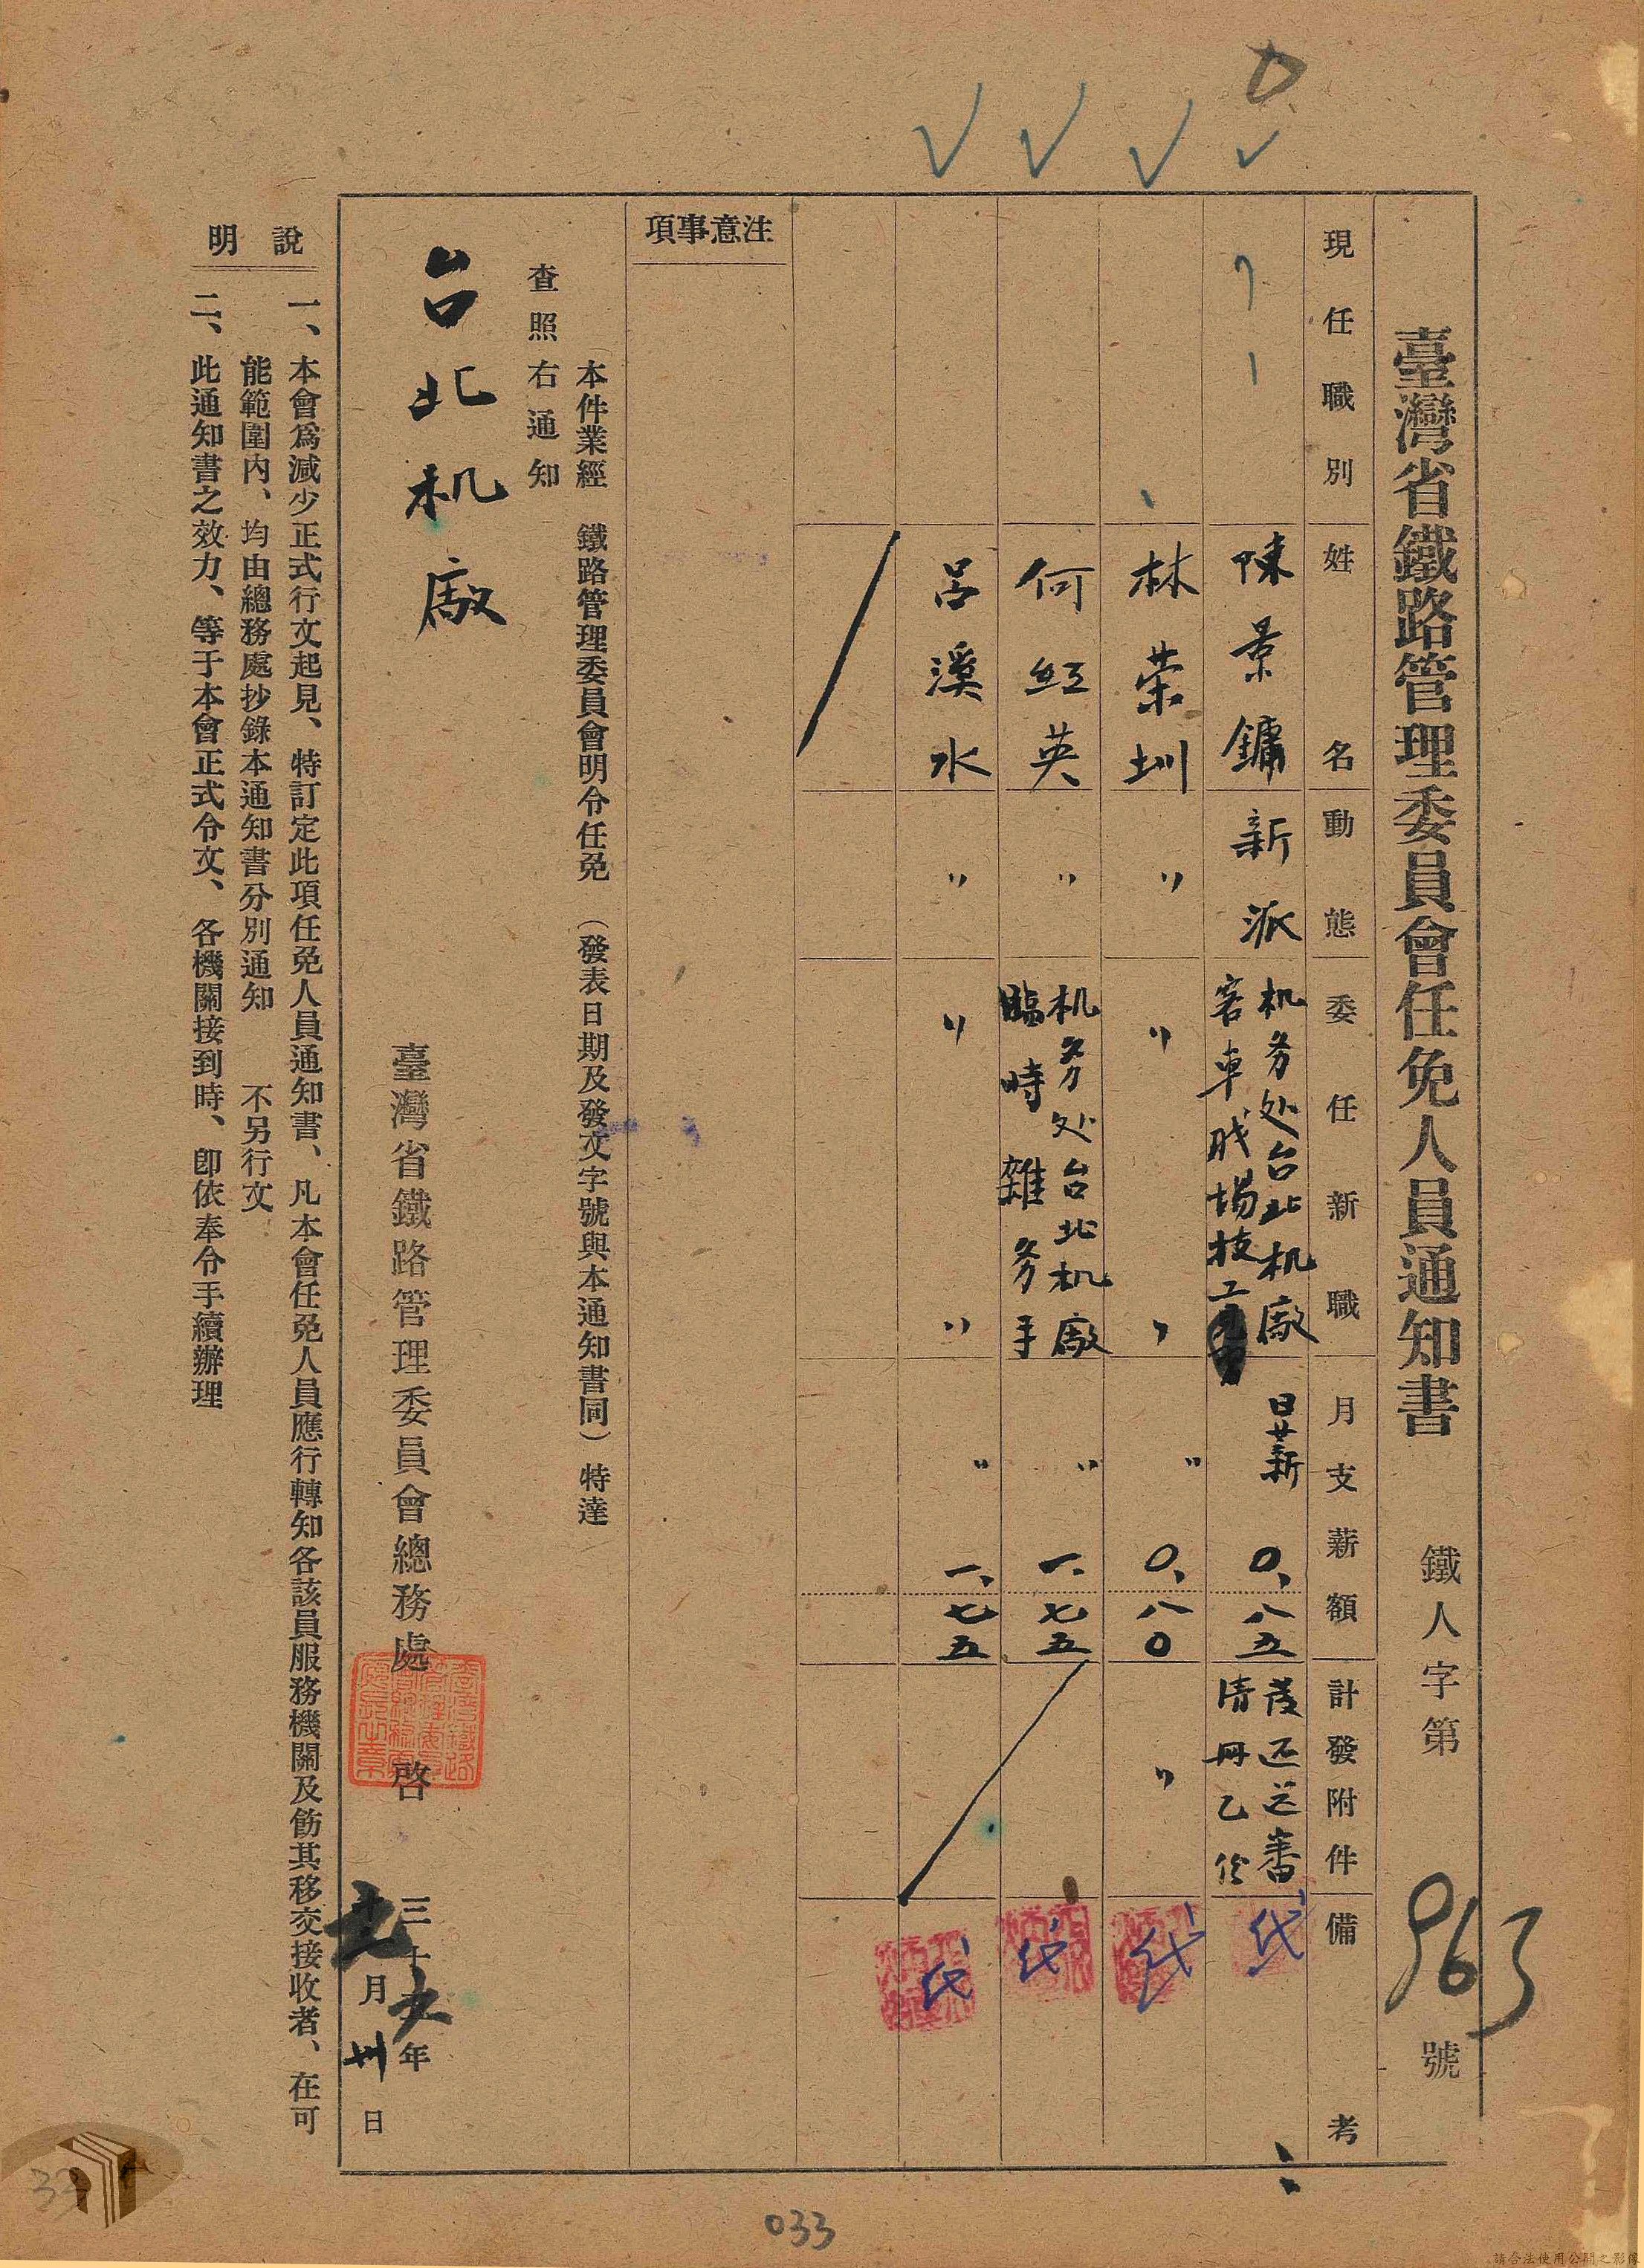 臺灣省鐵路管理委員會任免人員通知書 鐵人字第963號
現任職別 姓名 動態 委任新職 月支薪額 計發附件 備考
陳景鏞 新派 机务处台北机廠
客車戝場技工 日薪 〇、八五 發还送審
清冊乙份 代
林荣圳 〃 〃 〃 〃 〇、八〇 〃 代
何紅英 〃 机务处台北机廠
臨時雜务手 〃 一、七五 代
呂溪水 〃 〃 〃 〃 一、七五 代
注意事項
本件業經 鐵路管理委員會明令任免 (發表日期及發文字號與本通知書同) 特達
查照右通知
台北机廠
臺灣省鐵路管理委員會總務處 啓
三十五年
十一月卅日
說明
一、本會爲減少正式行文起見、特訂定此項任免人員通知書、凡本會任免人員應行轉知各該員服務機關及飭其移交接收者、在可
能範圍內、均由總務處抄錄本通知書分別通知 不另行文
二、此通知書之效力、等于本會正式令文、各機關接到時、即依奉令手續辦理
033
33
請合法使用公開之影像